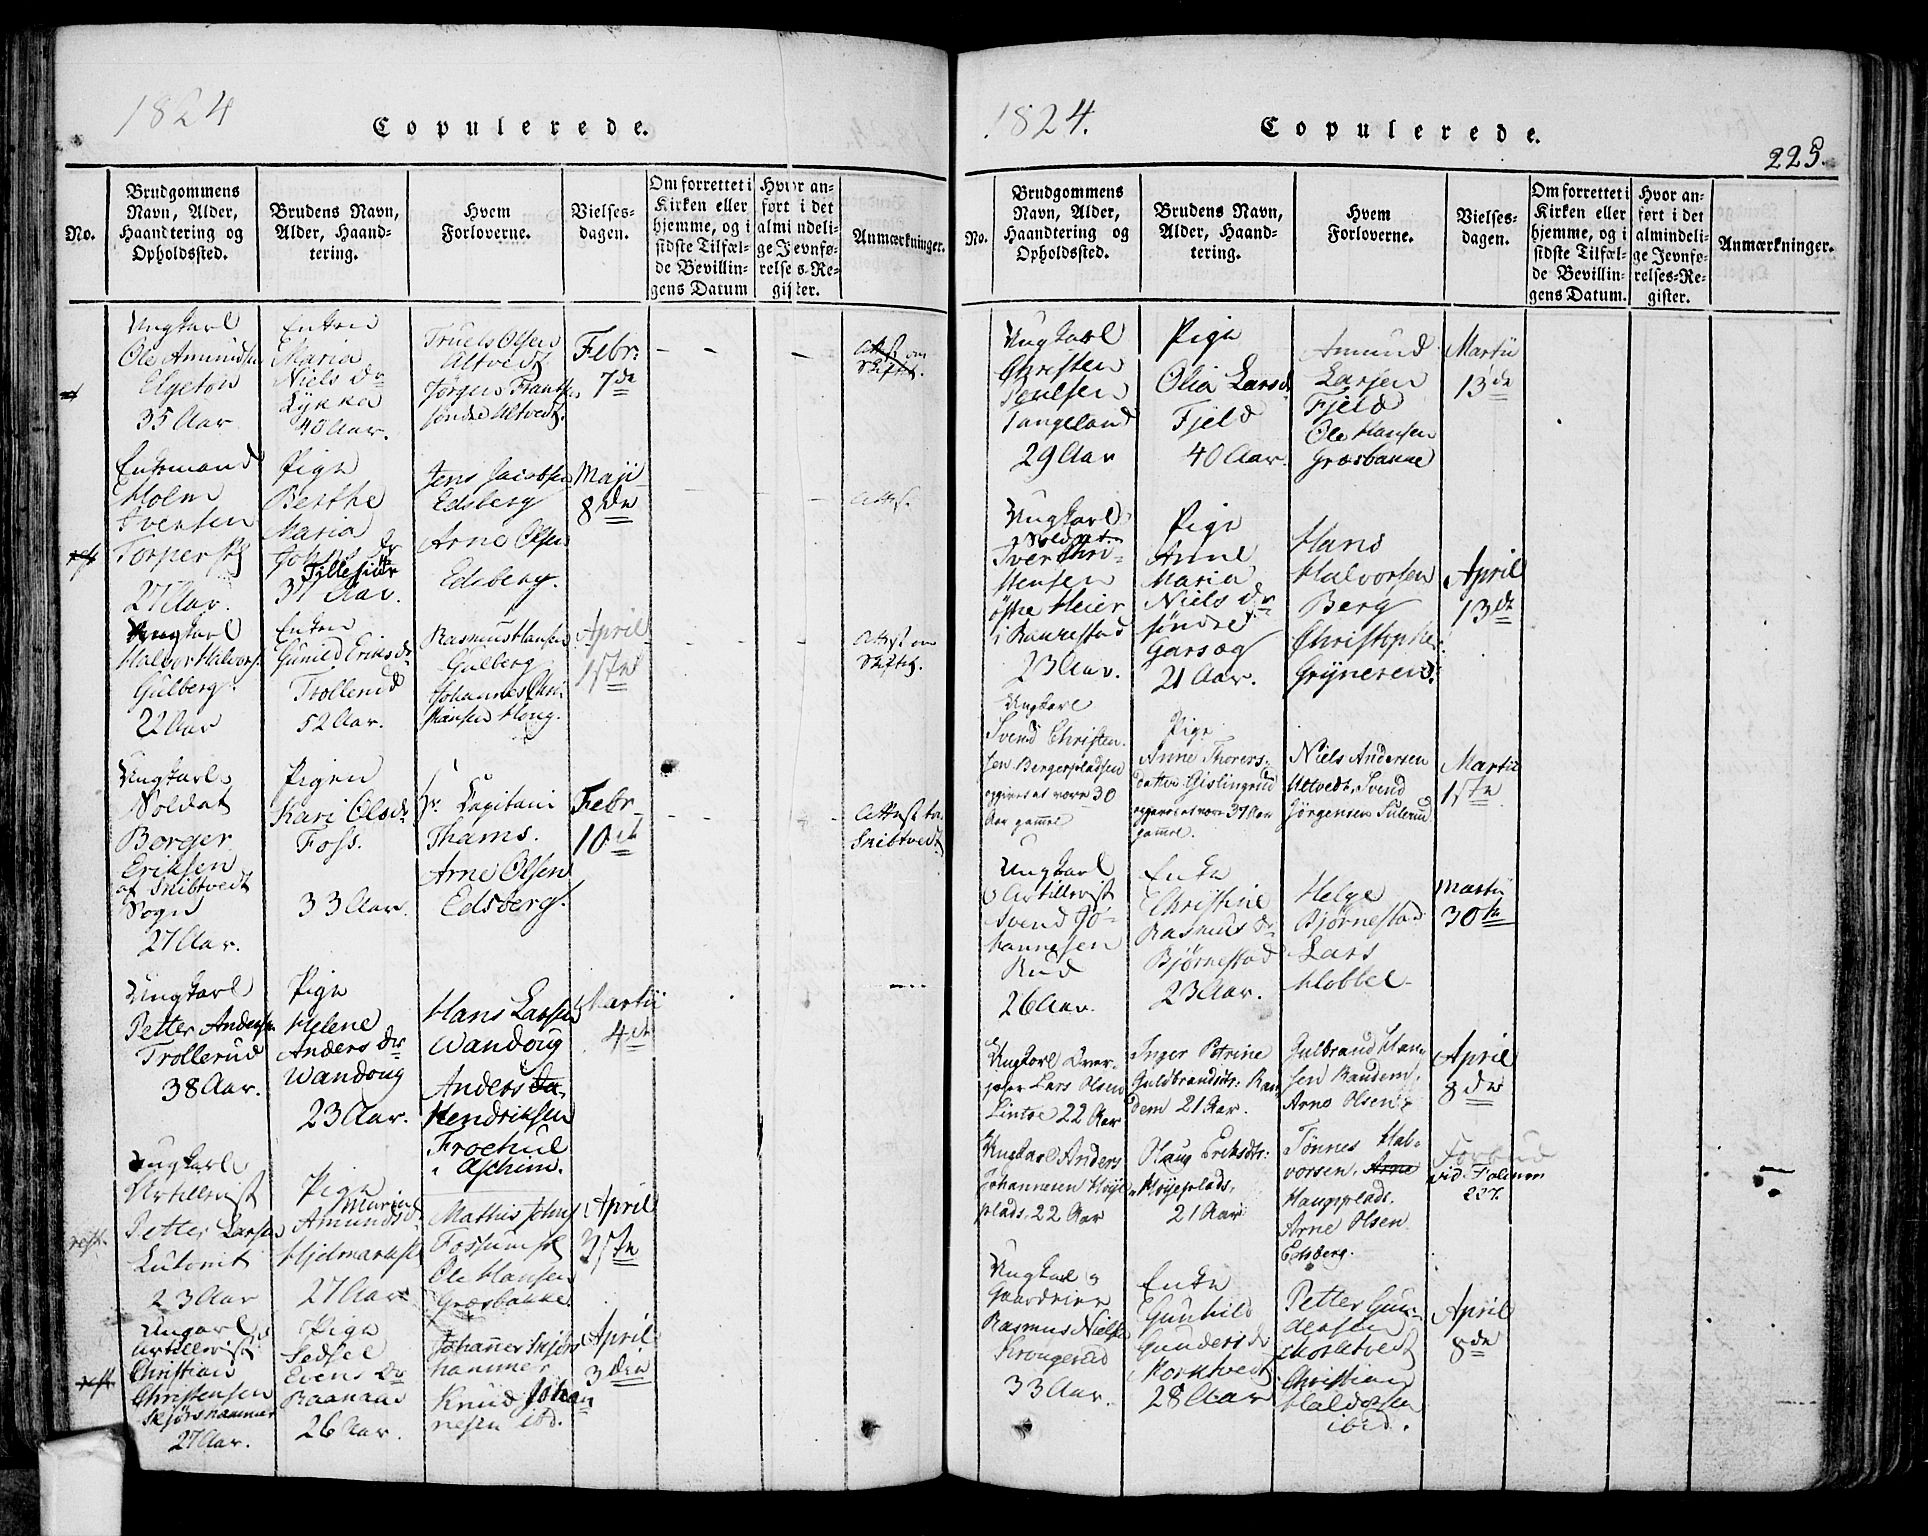 1824
Copulerede.
No.
Brudgommens
Navn, Alder,
Haandtering og
Opholdssted.
Brudens Navn,
Alder, Haand-
tering.
Hvem
Forloverne.
Vielses-
dagen.
Om forrettet i
Kirken eller
hjemme, og i
sidste Tilfæl-
de Bevillin-
gens Datum
Hvor an-
ført i det
almindeli-
ge Jevnfø-
relses-Re-
gister.
Anmærkninger.
Ungkarl
Ole Amundsen
Elgetøn
35 Aar
Enken
Maria
Niels Dr
Lykka
40 Aar.
Truels Olsen
Altvedt
Jørgen Frantz
søndre Altvedt.
Febr:
7de
Attest om
Skiftet.
Enkemand
Holm
Iversen
27 Aar.
Pige
Berthe
Maria
37 Aar.
Jens Jacobsen
Edsberg
Arne Olsen
Edsberg.
Maji
8de
Attest.
Ungkarl
Halvor Halvors.
Gulberg.
22 Aar
Enken
Gunild Eriks dr
Trollerud
52 Aar.
Rasmus Hansen
Gulberg
Johannes Chri-
stiansen Houg.
April
1ste
Attest om
Skiftet.
Ungkarl
Soldat
Borger
Eriksen
af Skibtvedt
Sogn
27 Aar.
Pigen
Kari Olsdr
Foss.
33 Aar.
Hr. Capitain
Thams.
Arne Olsen
Edsberg.
Febr
10de
Attest fra
Skibtvedt
Ungkarl
Petter Andersen
Trollerud
38 Aar.
Pige
Helene
Anders dr
Wandoug
23 Aar.
Hans Larsen
Wandoug
Anders
Hendriksen
Froehul
i Aschim.
Martii
4de
rest.
Ungkarl
Artillerist
Petter Larsen
23 Aar
Pige
Maria
Amundsdr
27 Aar
Mathis Johns
Ole Hansen
Græsbakke
April
Ungkarl
Artillerist
Christian
Christensen
Skjørshammer
27 Aar.
Pige
Sedsel
Evens Dr
Raanaas
26 Aar.
Johannes Skjørs-
hammer
Knud Johan
nesen ibd.
April
3den
1824.
Copulerede.
225.
No.
Brudgommens
Navn, Alder,
Haandtering og
Opholdssted.
Brudens Navn,
Alder, Haand-
tering.
Hvem
Forloverne.
Vielses-
dagen.
Om forrettet i
Kirken eller
hjemme, og i
sidste Tilfæl-
de Bevillin-
gens Datum.
Hvor an-
ført i det
almindeli-
ge Jevnfø-
relses-Re-
gister.
Anmærkninger.
Ungkarl
Christen
Poulsen
Tangeland
29 Aar
Pige
Olia Larsdr
Fjeld
40 Aar.
Amund
Larsen
Fjeld
Ole Hansen
Græsbakke
Martii
13de
Ungkarl
Soldat
Iver Chri-
stensen
østre Heier
i Rakkestad
23 Aar.
Pige
Anne
Maria
Niels dr
søndre
Garsøg
21 Aar.
Hans
Halvorsen
Berg
Christopher
April
13de
Ungkarl
Svend Christen-
sen Bergerpladsen
opgivet at være 30
Aar gammel
Pige
Anne Thorers-
datter Gislingrud
opgivet at være 37 Aar
gammel.
Niels Andersen
Altvedt, Svend
Jørgensen Sulerud
Martii
1ste
Ungkarl
Artillerist
Svend Jo-
hannesen
Rud
26 Aar.
Enke
Christine
Rasmus dr
Bjørnestad
23 Aar.
Helge
Bjørnestad
Lars
Mobbel
Martii
30te
Ungkarl Qver-
Lars Olsen
Lintoe 22 Aar
Inger Petrine
Guldbrandsdtr: Ran
dem 21 Aar.
Gulbrand Han-
sen Randem,
Arne Olsen
April
8de
Ungkarl Anders
Johannesen Høye
plads. 22 Aar
Haug Eriksdtr:
Høyeplads.
21 Aar
Tønnes Hal-
vorsen, Arne
Haugplads.
Arne Olsen
Edsberg.
Forbud
vid. Folium
227.
Ungkarl og
Gaardeier
Rasmus Nielsen
Krongerud
33 Aar.
Enke
Gunhild
Gunders dr
Morktvedt
28 Aar
Petter Gun-
dersen
Morktvedt
Christian
Halvorsen
ibid.
April
8de